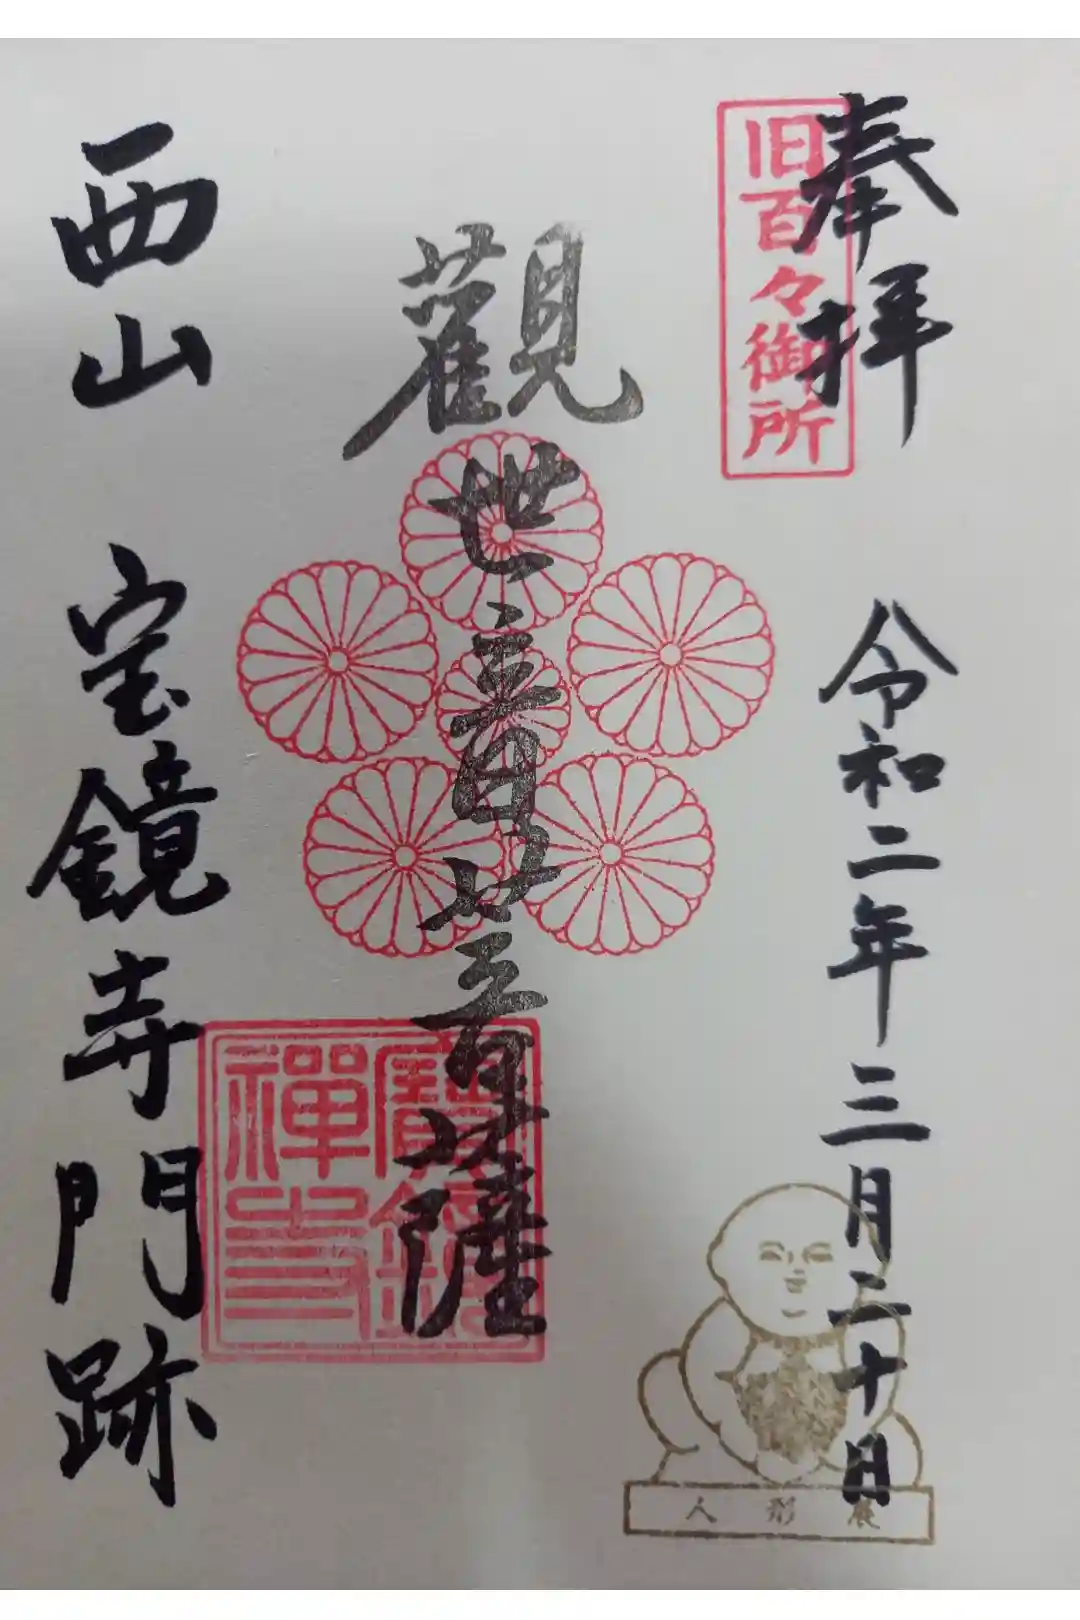 奉拝
旧百々御所
令和二年三月二十日
觀世音菩薩
寶鏡禪寺
西山 宝鏡寺門跡
人形展